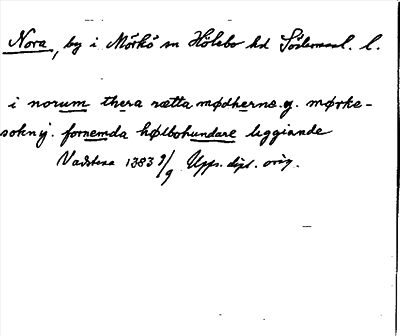 Nora, by i Mörkö sn Hölebo hd Södermanl. l.
i norum thera rætta mødherne. y. mørke-
sokny. fornemda hølbohundare liggiande
Vadstena 1383 9/9 Upps. dipl. orig.